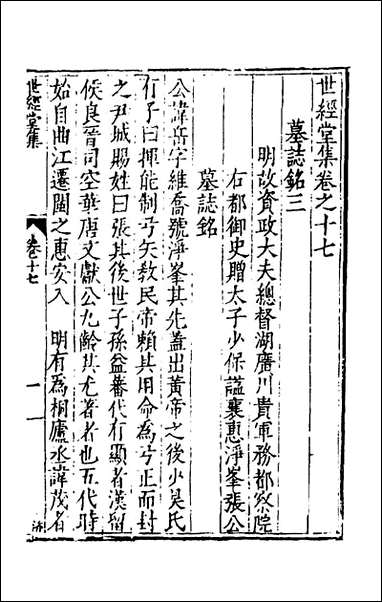 世經堂集卷之十七
墓誌銘三
明故資政大夫總督湖廣川貴軍務都察院
右都御史贈太子少保謚襄惠淨峯張公
墓誌銘
公諱岳字維喬號淨峯其先蓋出黃帝之後少昊氏
有子曰揮能制弓矢教民帝賴其用命為弓正而封
之尹城賜姓曰張其後世子孫益蕃代有顯者漢留
侯良晉司空華唐文獻公九齡其尤著者也五代時
始自曲江遷閩之惠安入　明有為桐廬丞諱茂者
世經堂集
卷十七
一